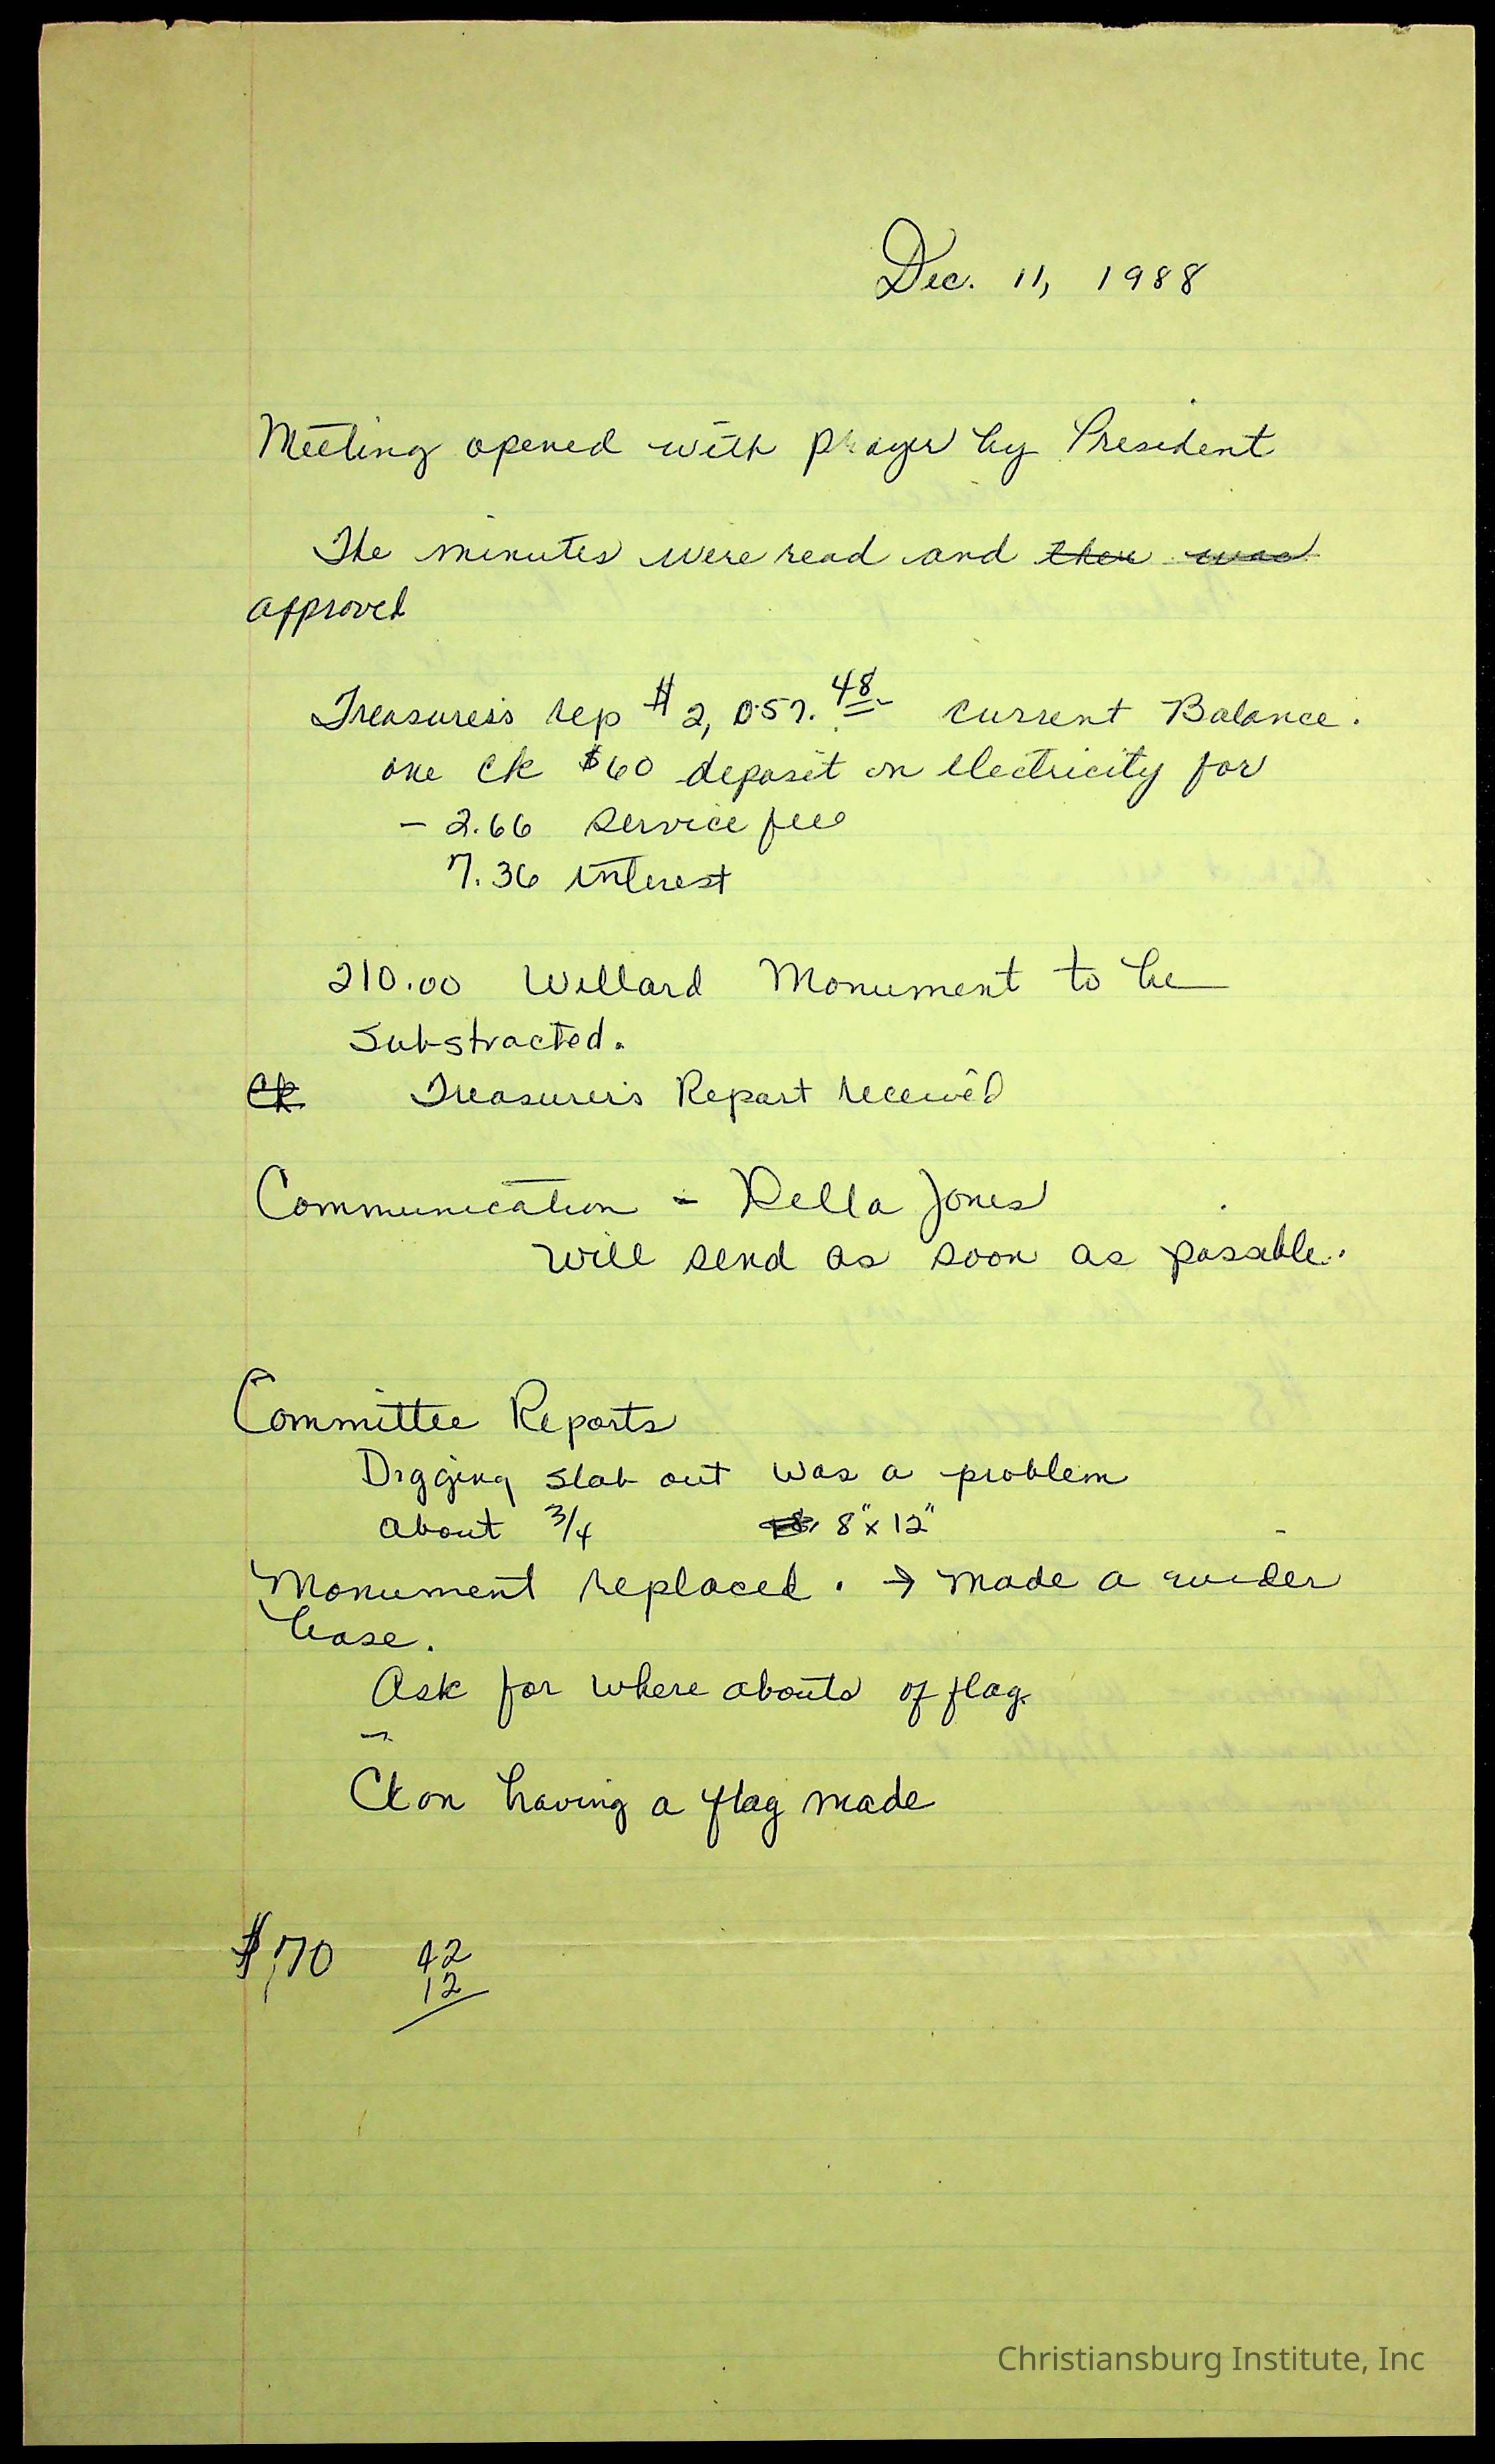 Dec. 11, 1988
Meeting opened with prayer by President
The minutes were read and then was
approved
Treasure's rep $2,057.48 current Balance.
one ck $60 deposit on electricity for
- 2.66 service fee
7.36 interest
210.00 Willard Monument to be
Substracted.
Ck Treasurer's Report received
Communication - Rella Jones
will send as soon as possible.
Committee Reports
Digging slab out was a problem
about 3/4 8" x 12"
Monument replaced. → made a wider
base.
Ask for where abouts of flag
Ck on having a flag made
$170 42
12
Christiansburg Institute, Inc